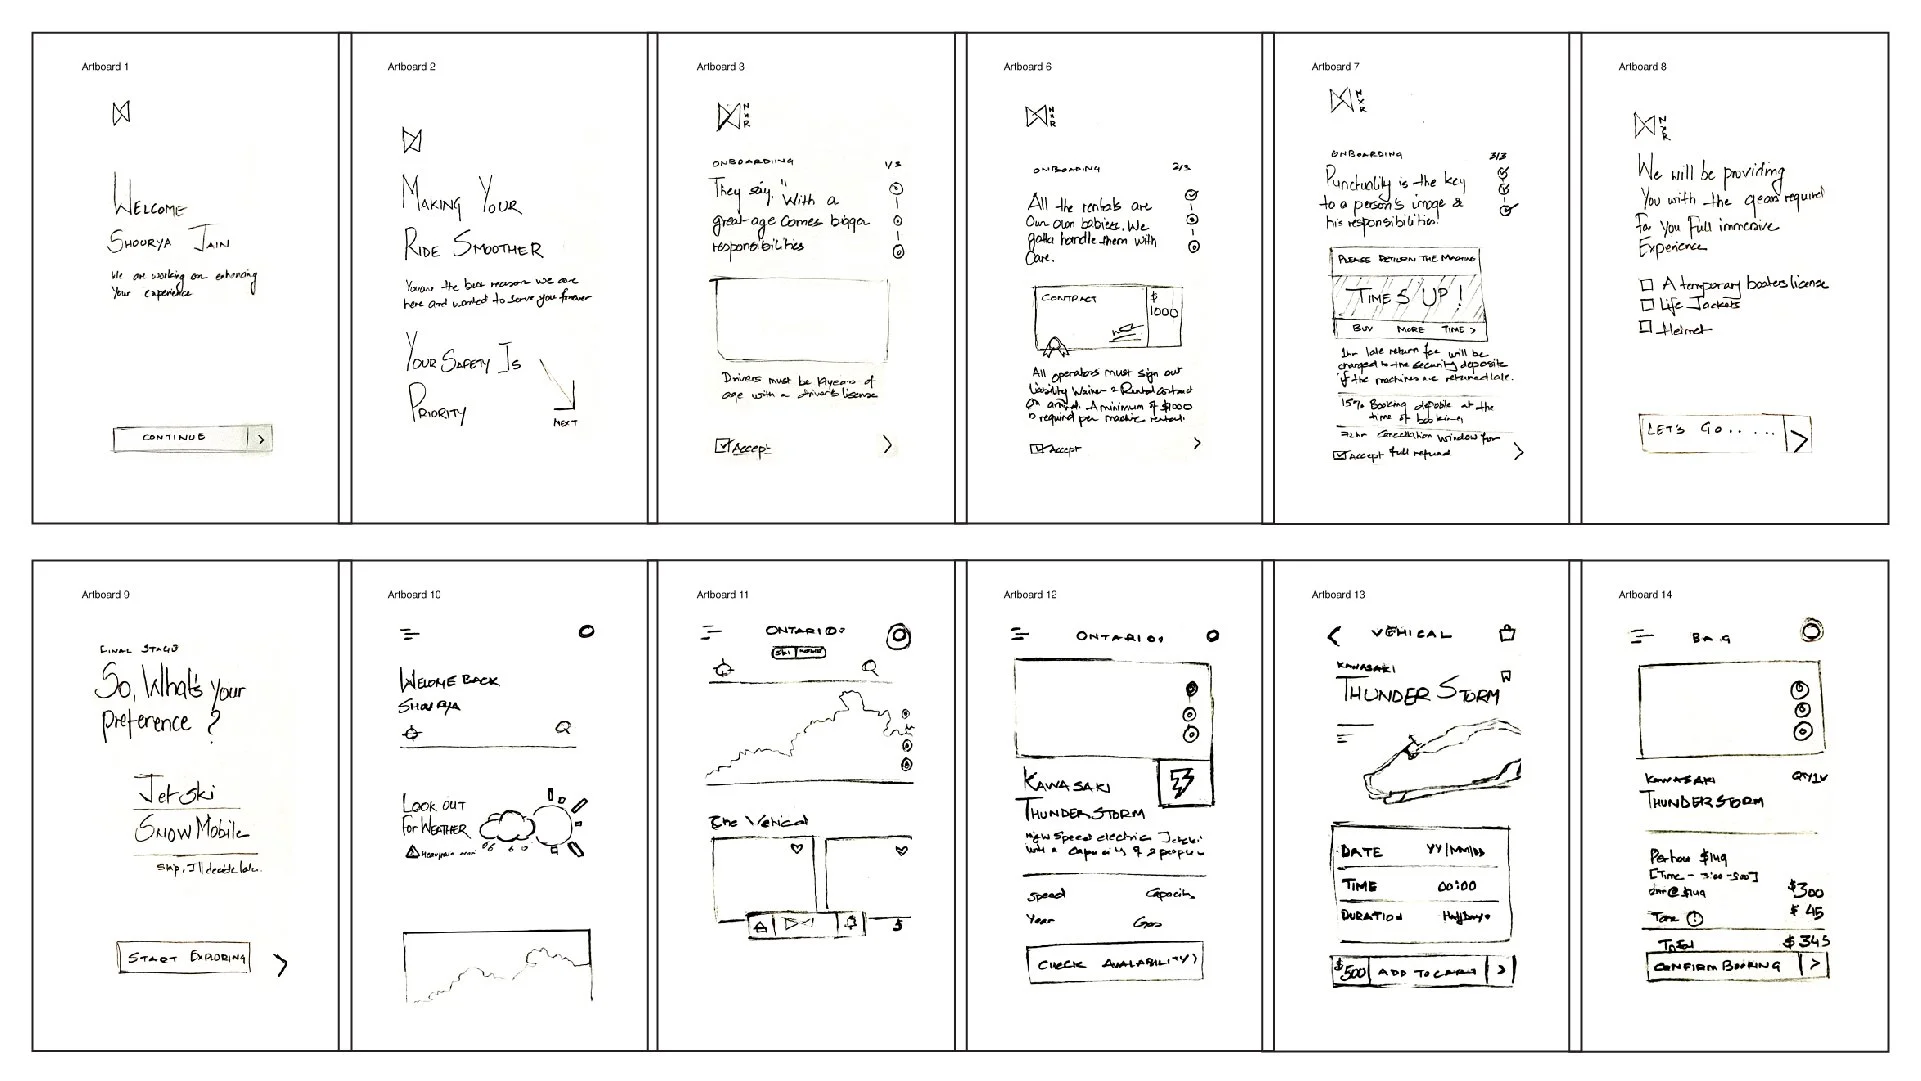 Artboard 1
WELCOME
SHOURYA JAIN
We are working on enhancing
Your experience
CONTINUE >
Artboard 2
MAKING YOUR
RIDE SMOOTHER
You are the best reason we are
here and wanted to serve you forever
YOUR SAFETY IS
PRIORITY
NEXT
Artboard 3
NXR
ONBOARDING 1/3
They say, "With a
great age comes bigger
responsibilities
Drivers must be 19 years of
age with a drivers license
Accept >
Artboard 6
NXR
ONBOARDING 2/3
All the rentals are
Our own babies. We
gotta handle them with
Care.
CONTRACT $
1000
All operators must sign out
liability Waiver & Rental contract
on arrival. A minimum of $1000
is required per machine rental.
Accept >
Artboard 7
NXR
ONBOARDING 3/3
Punctuality is the key
to a person's image &
his responsibilities!
PLEASE RETURN THE MACHINE
TIME'S UP!
BUY MORE TIME >
1hr late return fee will be
charged to the security deposite
if the machines are returned late.
15% Booking deposite at the
time of booking
72hr Cancellation Window for
Accept full refund >
Artboard 8
NXR
We will be providing
You with the gear required
For You full immersive
Experience
A temporary boaters license
Life Jackets
Helmet
LET'S GO...... >
Artboard 9
FINAL STAGE
So, What's your
preference ?
Jet Ski
SNOW Mobile
Skip, I'll decide later.
START EXPLORING >
Artboard 10
WELCOME BACK
SHOURYA
LOOK OUT
For WEATHER
Artboard 11
ONTARIO
SKI
The Vehical
Artboard 12
ONTARIO
KAWASAKI
THUNDERSTORM
High Speed electric Jetski
with a Capacity of 2 people
Speed Capacity
Year Gas
CHECK AVAILABILITY >
Artboard 13
< VEHICAL
KAWASAKI
THUNDER STORM
DATE YY/MM/DD
TIME 00:00
DURATION Half Day
$500 ADD TO CART >
Artboard 14
BAG
KAWASAKI QTY 1
THUNDERSTORM
Per hour $149
[Time - 3:00 - 5:00]
2hr @ $149 $300
$45
Total $345
CONFIRM BOOKING >